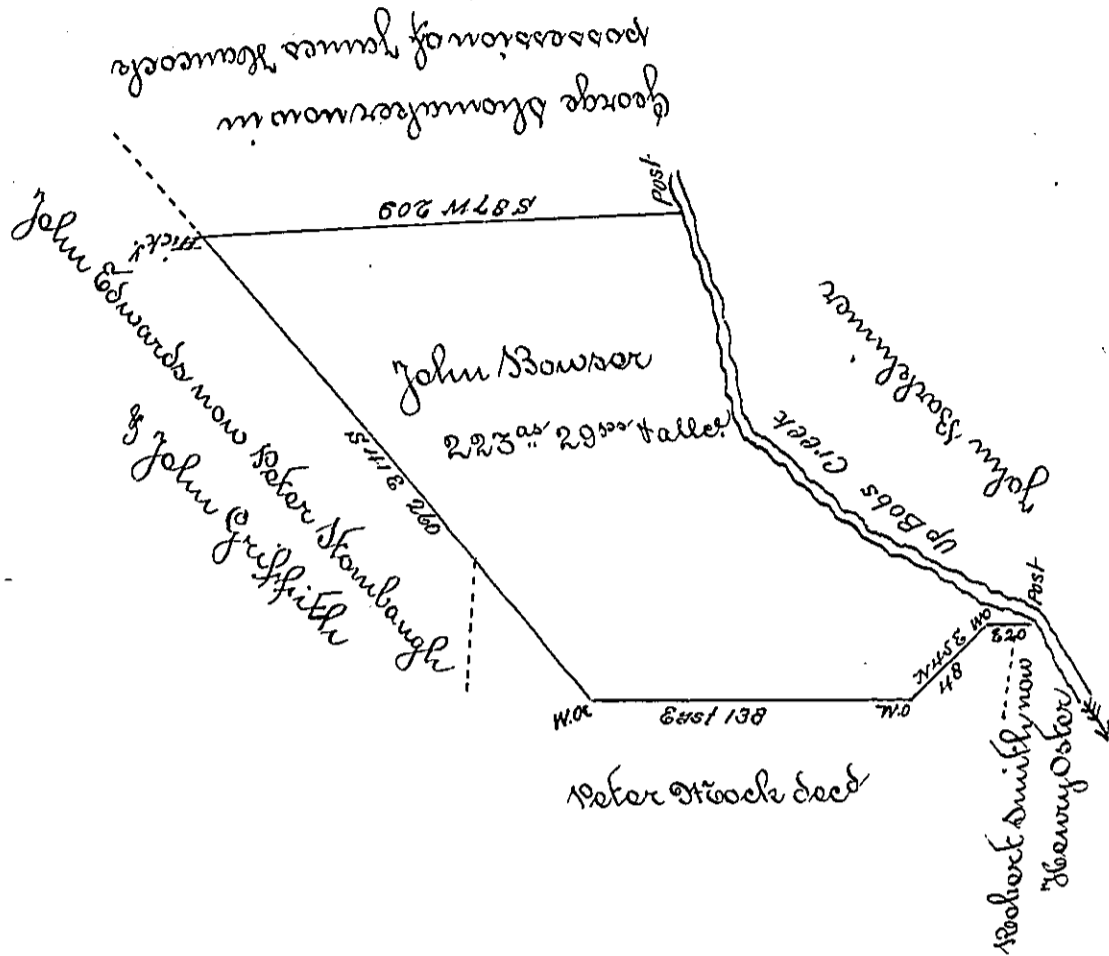 George Shomaker now in
possession of James Hancock
Post
S 87 W 209
Hick.y
John Edwards now Peter Stombaugh
& John Griffith
S 41 E 260
John Bowser
223 as 29 ps & allce.
John Barkehimer
Up Bobs Creek
Post
E 20
WO
N 45 E
48
W.O
East 138
W.Ok
Peter Mock decd
Robert Smith now
Henry Oster